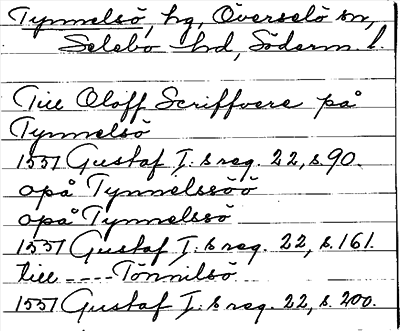 Tynnelsö, hg, Överselö sn,
Selebo hd, Söderm. l.
Till Oloff Scriffvere på
Tynnelsö
1551 Gustaf I:s reg. 22, s 90.
opå Tynnelssöö
opå Tynnelssö
1551 Gustaf I:s reg. 22, s. 161.
till ---- Tönnilsö
1551 Gustaf I:s reg. 22, s. 200.